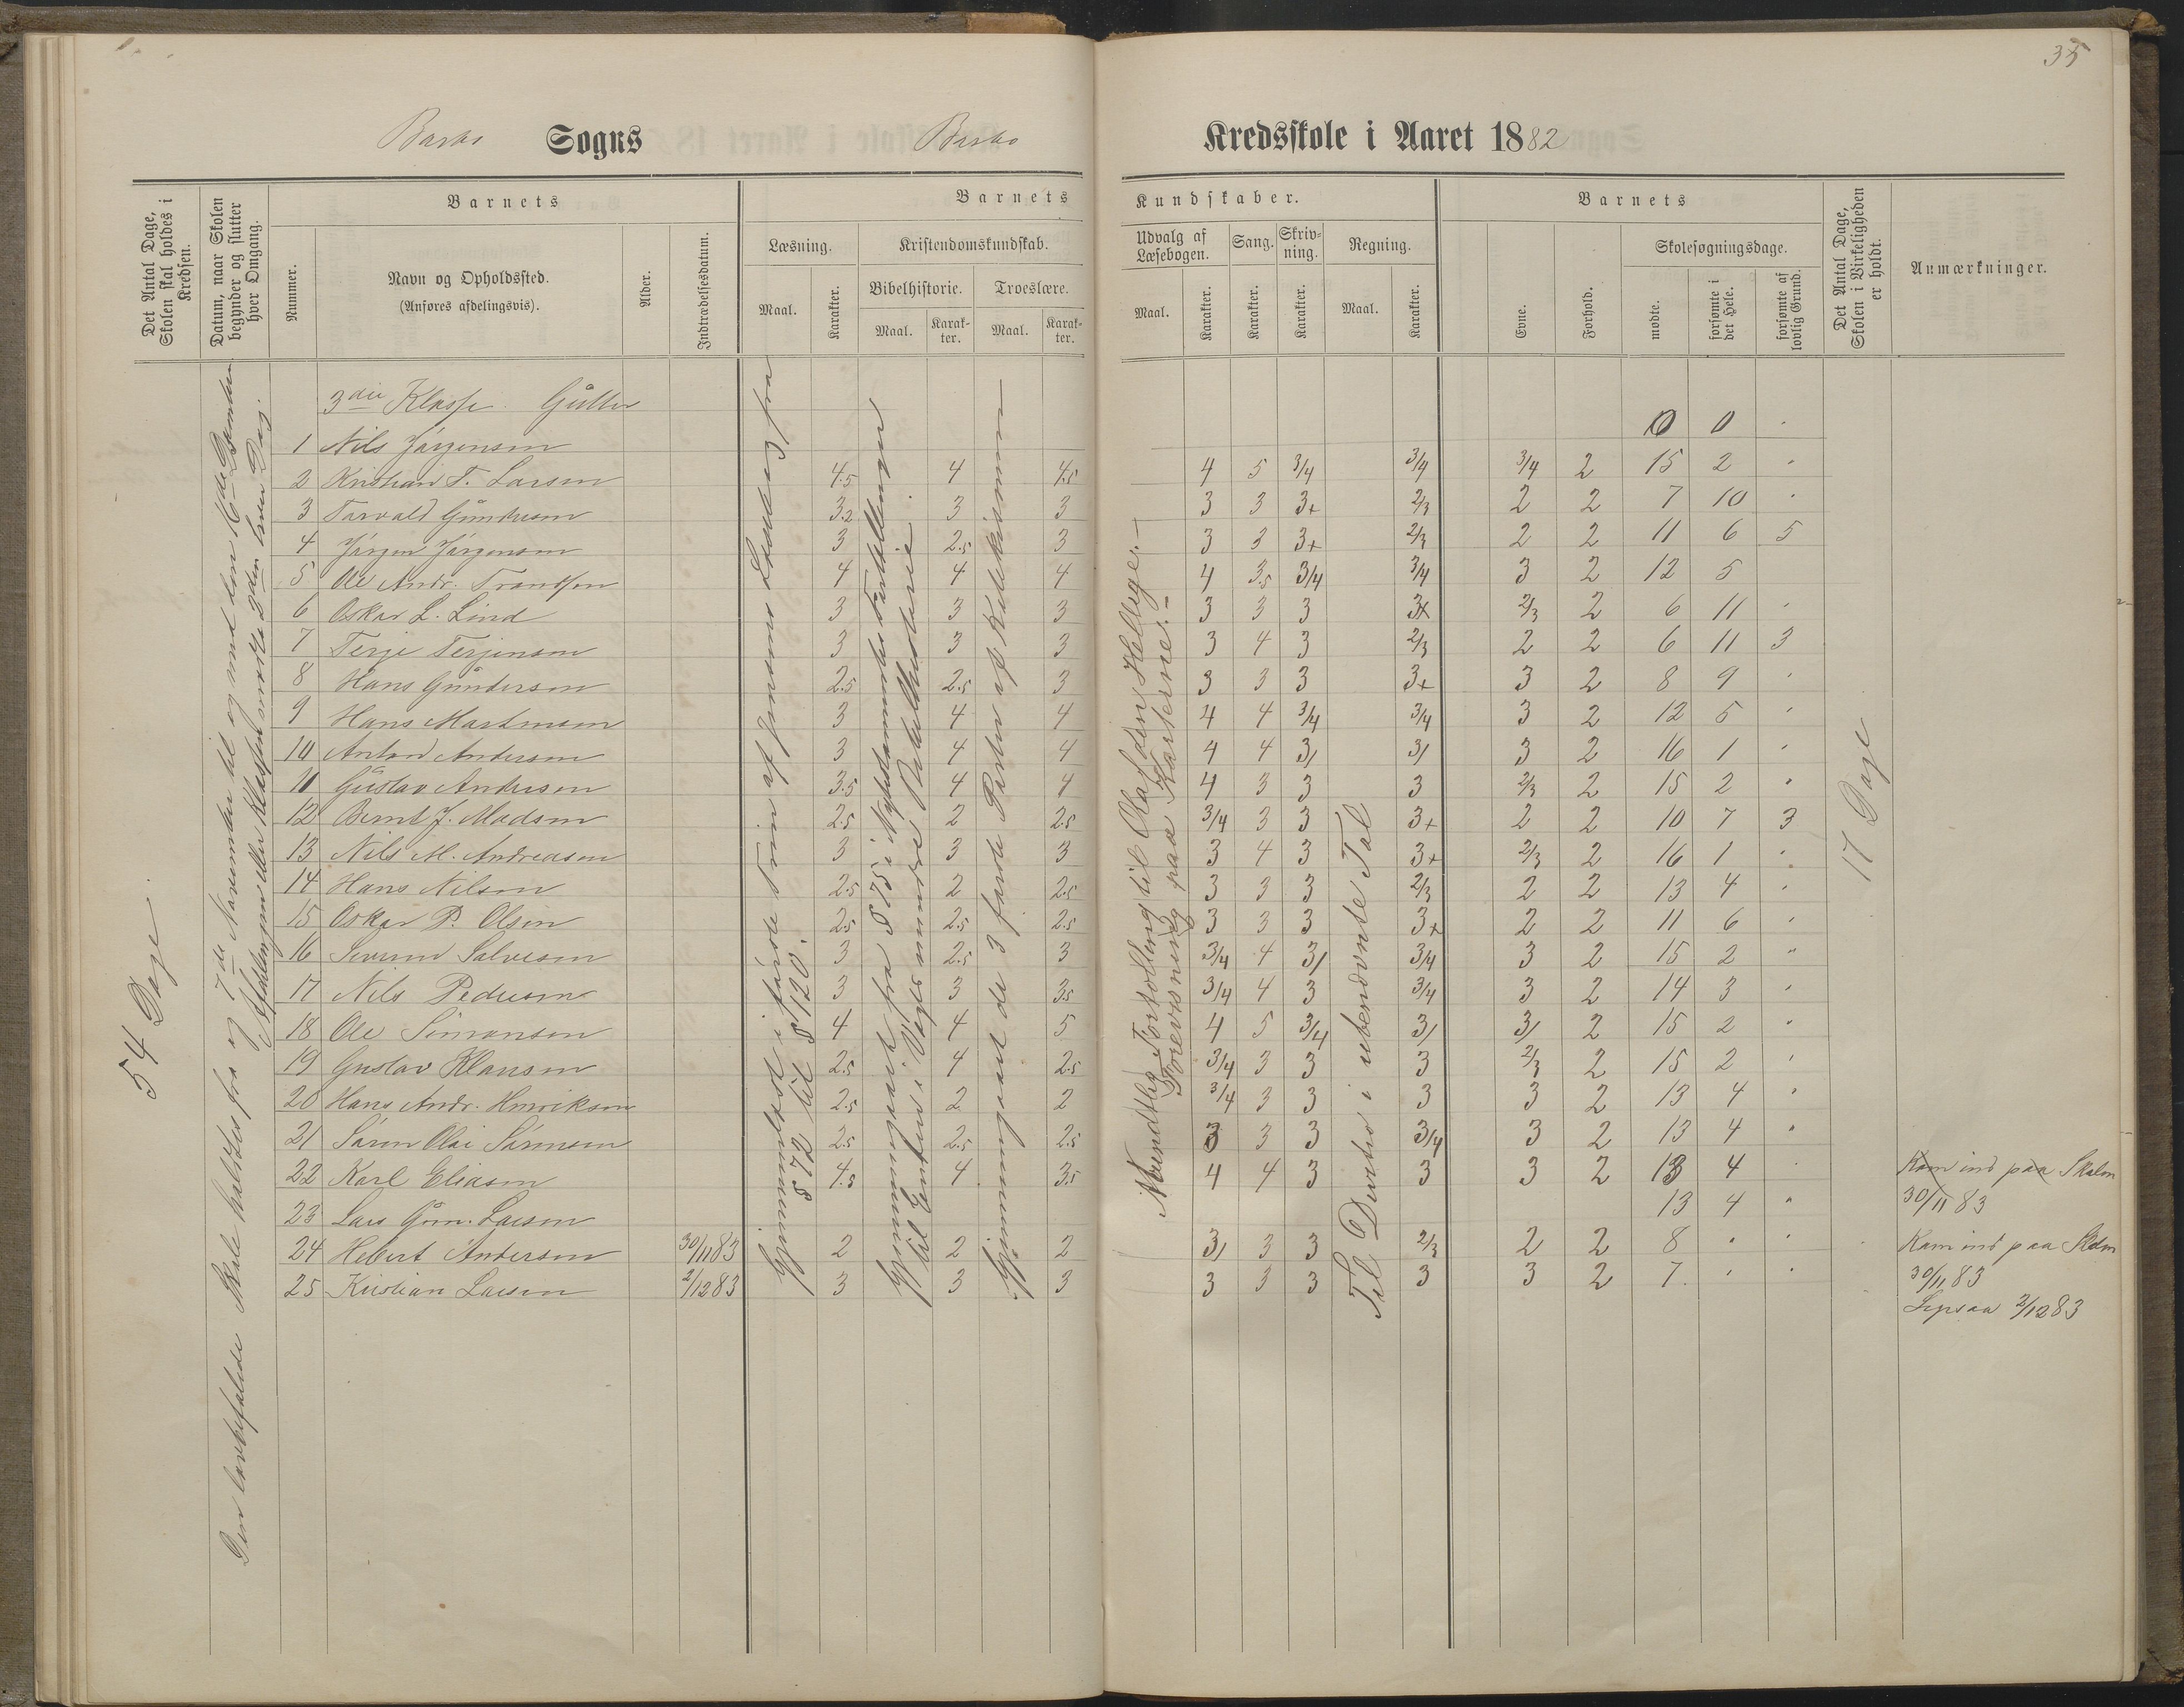 35
Barbo Sogns Barbo Kredsskole i Aaret 1882
Det Antal Dage, Skolen skal holdes i Kredsen.
Datum, naar Skolen begynder og slutter hver Omgang.
Nummer.
Barnets
Navn og Opholdssted.
(Anføres afdelingsvis).
Alder.
Indtrædelsesdatum.
Barnets Kundskaber.
Læsning.
Maal.
Karakter.
Kristendomskundskab.
Bibelhistorie.
Maal.
Karakter.
Troeslære.
Maal.
Karakter.
Udvalg af Læsebogen.
Maal.
Karakter.
Sang.
Karakter.
Skrivning.
Karakter.
Regning.
Maal.
Karakter.
Barnets
Evne.
Forhold.
Skolesøgningsdage.
mødte.
forsømte i det Hele.
forsømte af lovlig Grund.
Det Antal Dage, Skolen i Virkeligheden er holdt.
Anmærkninger.
54 Dage.
Den lovbefalede Skole holdtes fra og 7de November til og med den 16de December
Afdelingen eller Klassen mødte 2den hver Dag.
Gjennemlæst i første Trin af Jensens Læsebog fra
§ 72 til § 120.
Gjennemgaaet fra § 75 i Nytestamentes Fortællinger
til Enden i Vogts mindre Bibelhistorie.
Gjennemgaaet de 3 første Parter af Katekismen
Mundtlig Fortælling til Olaf den Hellige. –
Forevisning paa Karterne. –
Til Division i ubenævnte Tal
17 Dage
3die Klasse Gutter
1 Nils Jørgensen 0 0 "
2 Kristian T. Larsen 4.5 4 4.5 4 5 3/4 3/4 3/4 2 15 2 "
3 Torvald Gundersen 3.2 3 3 3 3 3+ 2/3 2 2 7 10 "
4 Jørgen Jørgensen 3 2.5 3 3 3 3+ 2/3 2 2 11 6 5
5 Ole Andr. Trondsen 4 4 4 4 3.5 3/4 3/4 3 2 12 5
6 Oskar L. Lind 3 3 3 3 3 3 3+ 2/3 2 6 11 "
7 Terje Terjensen 3 3 3 3 4 3 2/3 2 2 6 11 3
8 Hans Gundersen 2.5 2.5 3 3 3 3 3+ 3 2 8 9 "
9 Hans Martinsen 3 4 4 4 4 3/4 3/4 3 2 12 5 "
10 Anton Andersen 3 4 4 4 4 3/ 3/ 3 2 16 1 "
11 Gustav Andersen 3.5 4 4 4 3 3 3 2/3 2 15 2 "
12 Bernt J. Madsen 2.5 2 2.5 3/4 3 3 3+ 2 2 10 7 3
13 Nils M. Andreasen 3 3 3 3 4 3 3+ 2/3 2 16 1 "
14 Hans Nilsen 2.5 2 2.5 3 3 3 2/3 2 2 13 4 "
15 Oskar P. Olsen 2.5 2.5 2.5 3 3 3 3+ 2 2 11 6 "
16 Severin Salvesen 3 2.5 3 3/4 4 3/ 3/4 3 2 15 2 "
17 Nils Pedersen 3 3 3.5 3/4 4 3 3/4 3 2 14 3 "
18 Ole Simonsen 4 4 5 4 5 3/4 3/ 3/ 2 15 2 "
19 Gustav Klausen 2.5 4 2.5 3/4 3 3 3 2/3 2 15 2 "
20 Hans Andr. Henriksen 2.5 2 2 3/4 3 3 3 3 2 13 4 "
21 Søren Olai Sørensen 2.5 2.5 2.5 3 3 3 3/4 3 2 13 4 "
22 Karl Eliasen 4.5 4 3.5 4 4 3 3 3 2 13 4 " Kom ind paa Skolen
23 Lars Gun. Larsen 13 4 " 30/11 83
24 Hebert Andersen 30/11 83 2 2 2 3/ 3 3 2/3 2 2 8 " " Kom ind paa Skolen
25 Kristian Larsen 2/12 83 3 3 3 3 3 3 3 3 2 7 " " 30/11 83
2/12 83